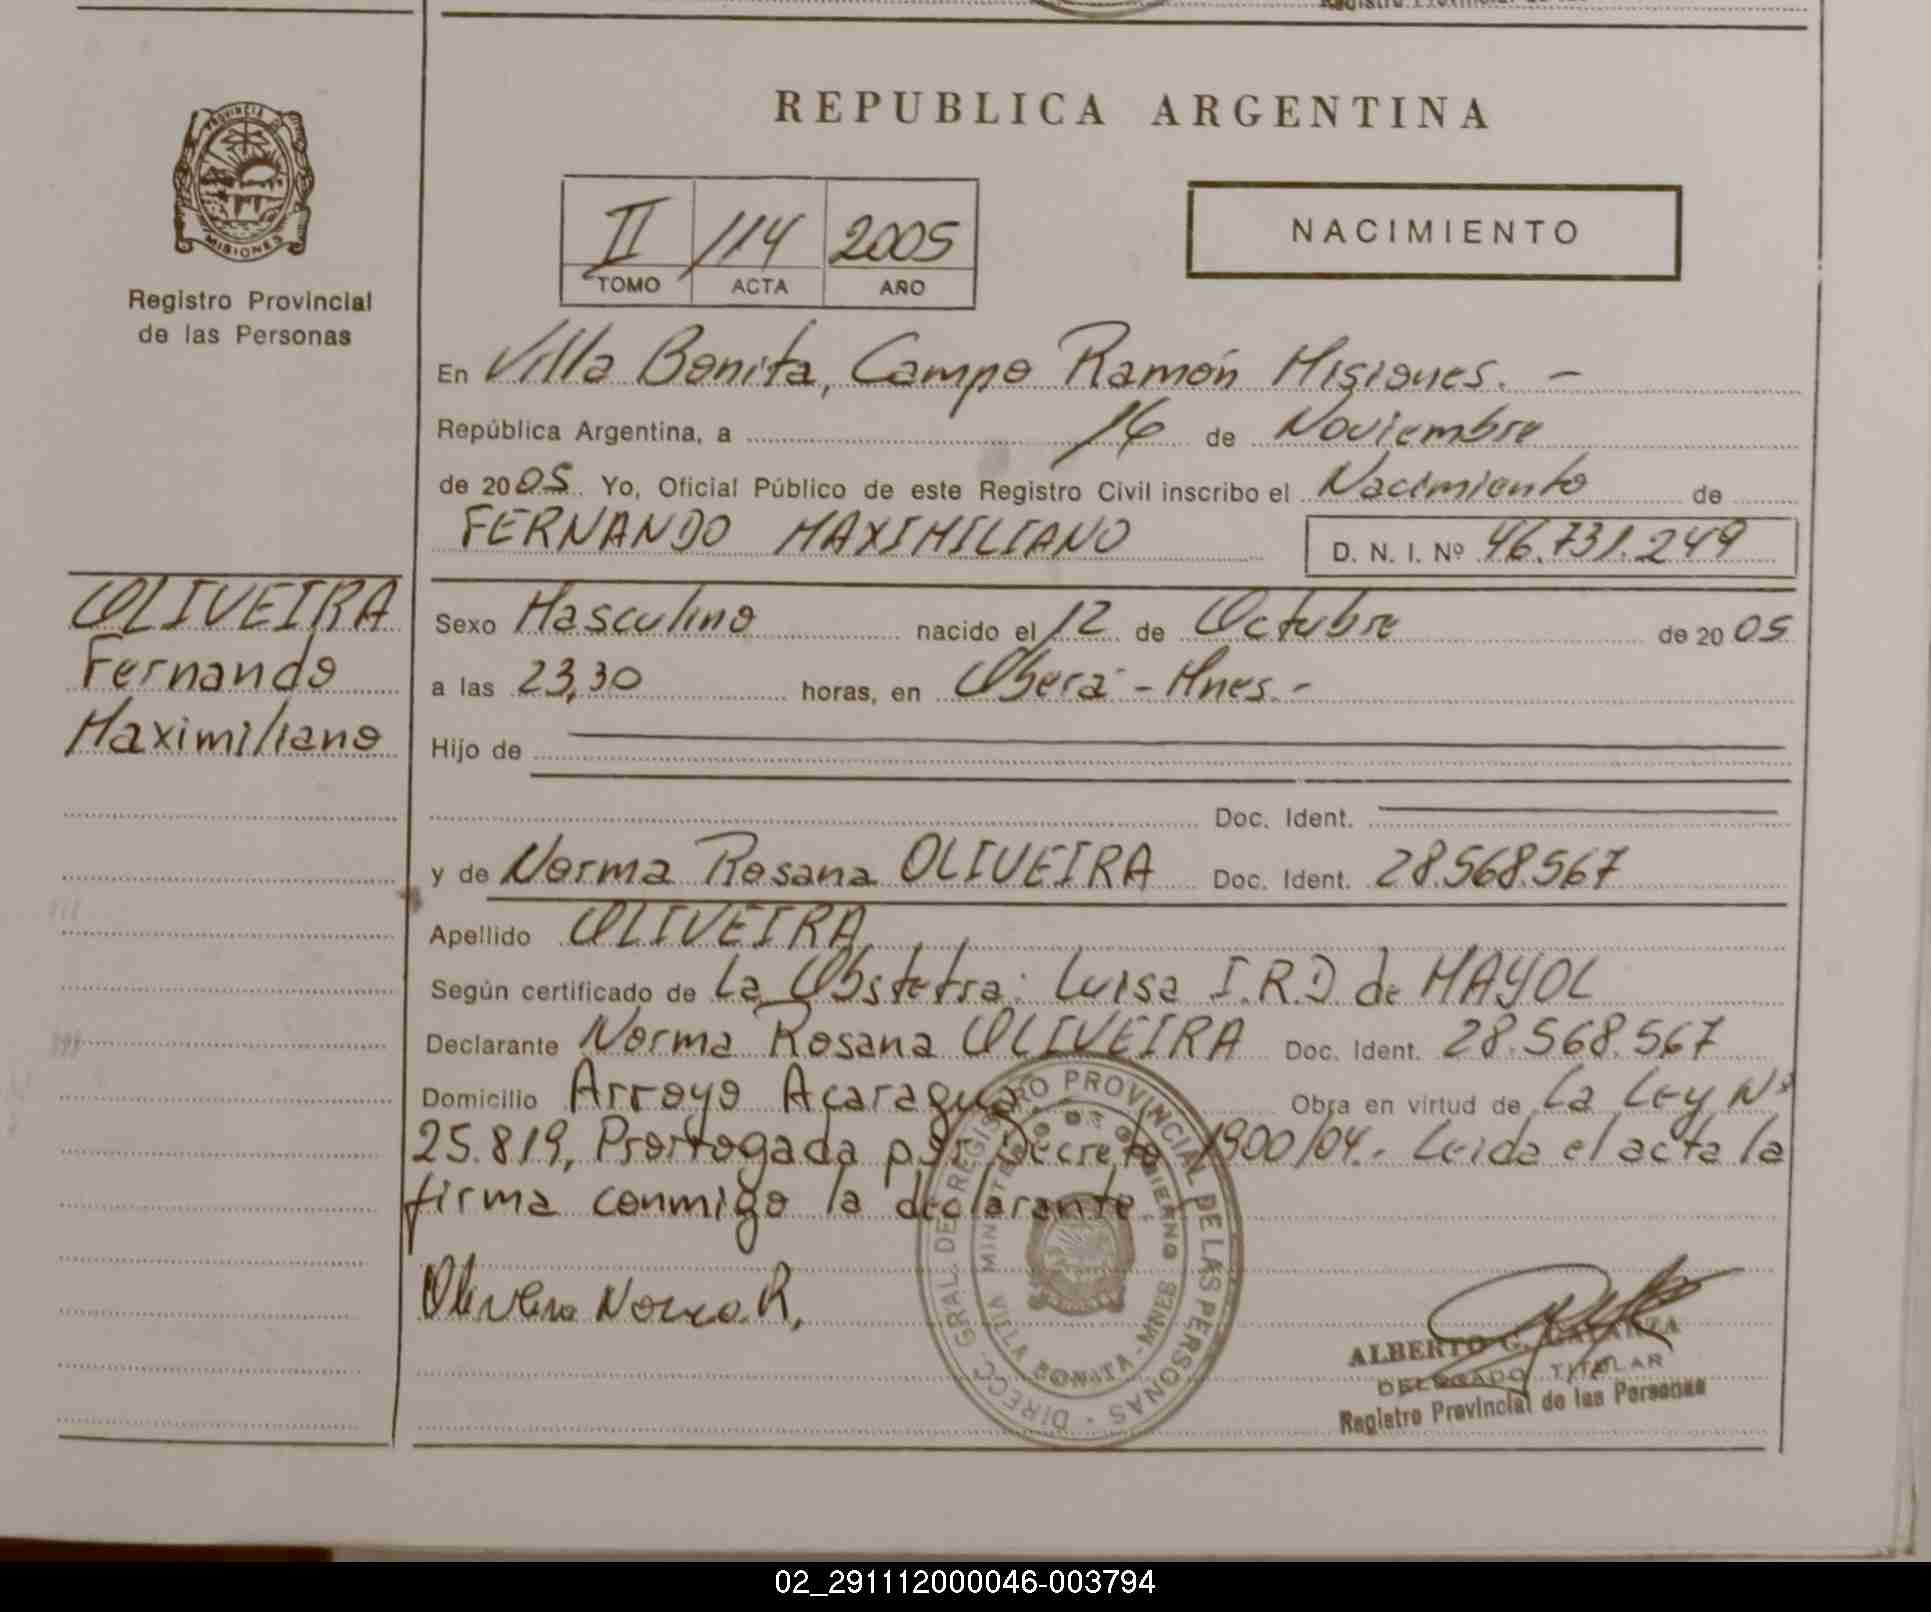 REPUBLICA ARGENTINA
PROVINCIA DE
MISIONES
Registro Provincial
de las Personas
II 114 2005
TOMO ACTA AÑO
NACIMIENTO
En Villa Bonita, Campo Ramón Misiones. -
República Argentina, a 16 de Noviembre
de 2005 Yo, Oficial Público de este Registro Civil inscribo el Nacimiento de
FERNANDO MAXIMILIANO D. N. I. Nº 46.731.249
OLIVEIRA
Fernando
Maximiliano
Sexo Masculino nacido el 12 de Octubre de 2005
a las 23,30 horas, en Oberá - Mnes. -
Hijo de
Doc. Ident.
y de Norma Rosana OLIVEIRA Doc. Ident. 28.568.567
Apellido OLIVEIRA
Según certificado de La Obstetra: Luisa I.R.D. de MAYOL
Declarante Norma Rosana OLIVEIRA Doc. Ident. 28.568.567
Domicilio Arroyo Acaragua Obra en virtud de La Ley Nº
25.819, Prorrogada por Decreto 1900/04.- Leida el acta la
firma conmigo la declarante.
Oliveira Norma R.
DIRECC. GRAL. DE REGISTRO PROVINCIAL DE LAS PERSONAS
MINISTERIO DE GOBIERNO
VILLA BONITA - MNES
ALBERTO G.
DELEGADO TITULAR
Registro Provincial de las Personas
02_291112000046-003794